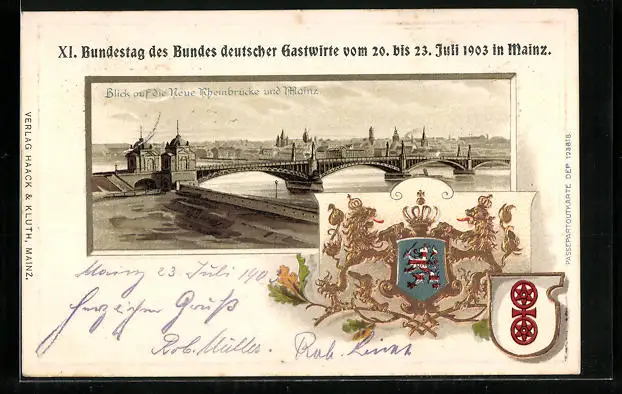 XI. Bundestag des Bundes deutscher Gastwirte vom 20. bis 23. Juli 1903 in Mainz.
Blick auf die Neue Rheinbrücke und Mainz
VERLAG HAACK & KLUTH, MAINZ.
PASSEPARTOUTKARTE DEP. 123818.
Mainz 23 Juli 190
Herzlichen Gruß
Rob. Müller.
Rob.